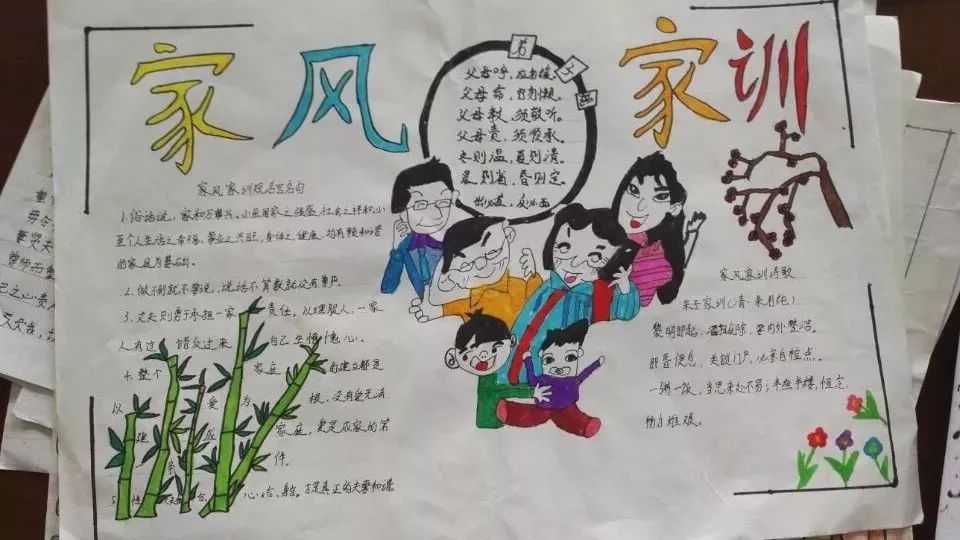 家风
家训
父母呼，应勿缓。
父母命，行勿懒。
父母教，须敬听。
父母责，须顺承。
冬则温，夏则凊。
晨则省，昏则定。
出必告，反必面
家风家训规名言名句
1.俗话说，家和万事兴。小至国家之强盛，社会之祥和，小
至个人生活之幸福、事业之兴旺，身体之健康，均有赖和谐
的家庭为基石。
2.做不到就不要说，说话不算数就没有尊严。
3.丈夫则勇于承担一家 责任，以理服人，一家
人有过 错反过来 自己 生惭愧心。
4.整个 家庭 的建立都是
以 爱 为 根，没有爱无法
建 成 家庭，更是成家的第
一 条 件。
心合、气合，才是真正的夫妻和谐
家风家训诗歌
朱子家训（清·朱自纯）
黎明即起， 庭除，要内外整洁。
即昏便息，关锁门户，必亲自检点。
一粥一饭，当思来处不易；半丝半缕，恒念
物力维艰。